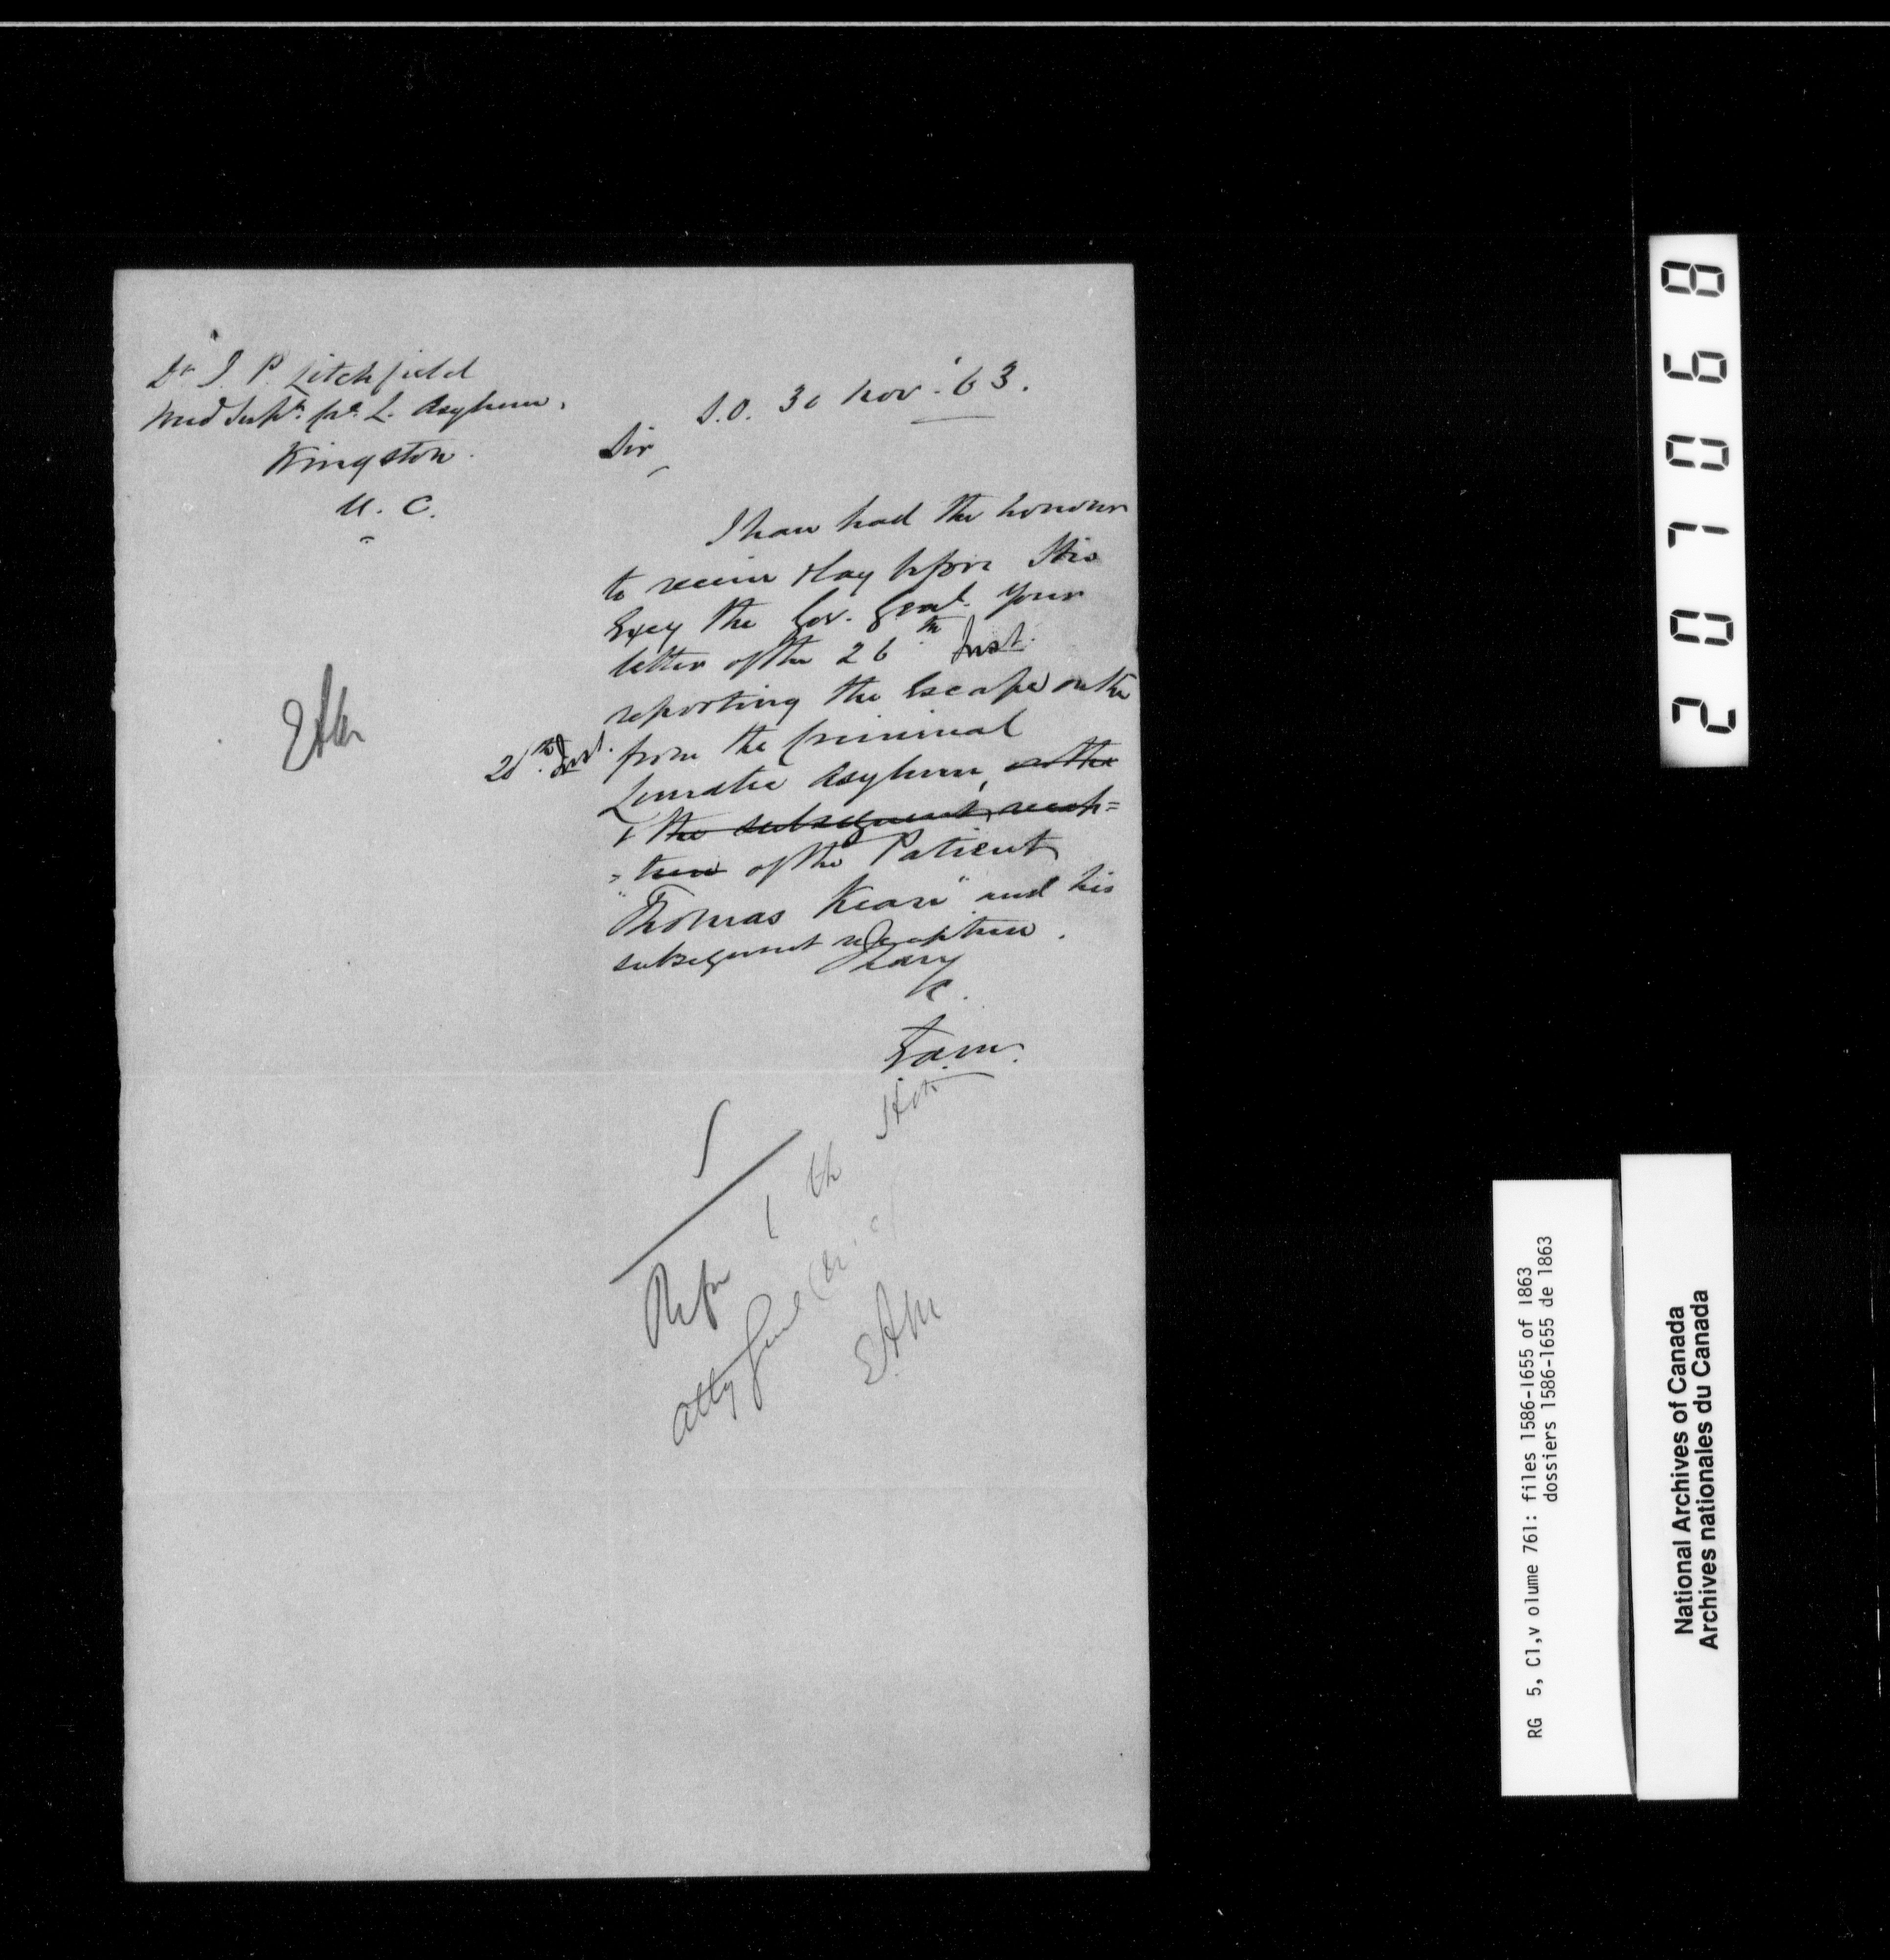 Dr J. P. Litchfield
Med Supt. Cr. L. Asylum,
Kingston.
U. C.
S.O. 30 Nov. '63.
Sir,
I have had the honour
to receive & lay before His
Excy the Gov. Genl. your
letter of the 26th Inst.
reporting the Escape on the
25th Inst. from the Criminal
Lunatic Asylum, on the
& the subsequent recap=
=ture of the Patient
"Thomas Kear" and his
subsequent recapture.
I have
&c.
E.A.M.
EAM
Refer
Atty Genl
EAM
207068
RG 5, C1,v olume 761: files 1586-1655 of 1863
dossiers 1586-1655 de 1863
National Archives of Canada
Archives nationales du Canada